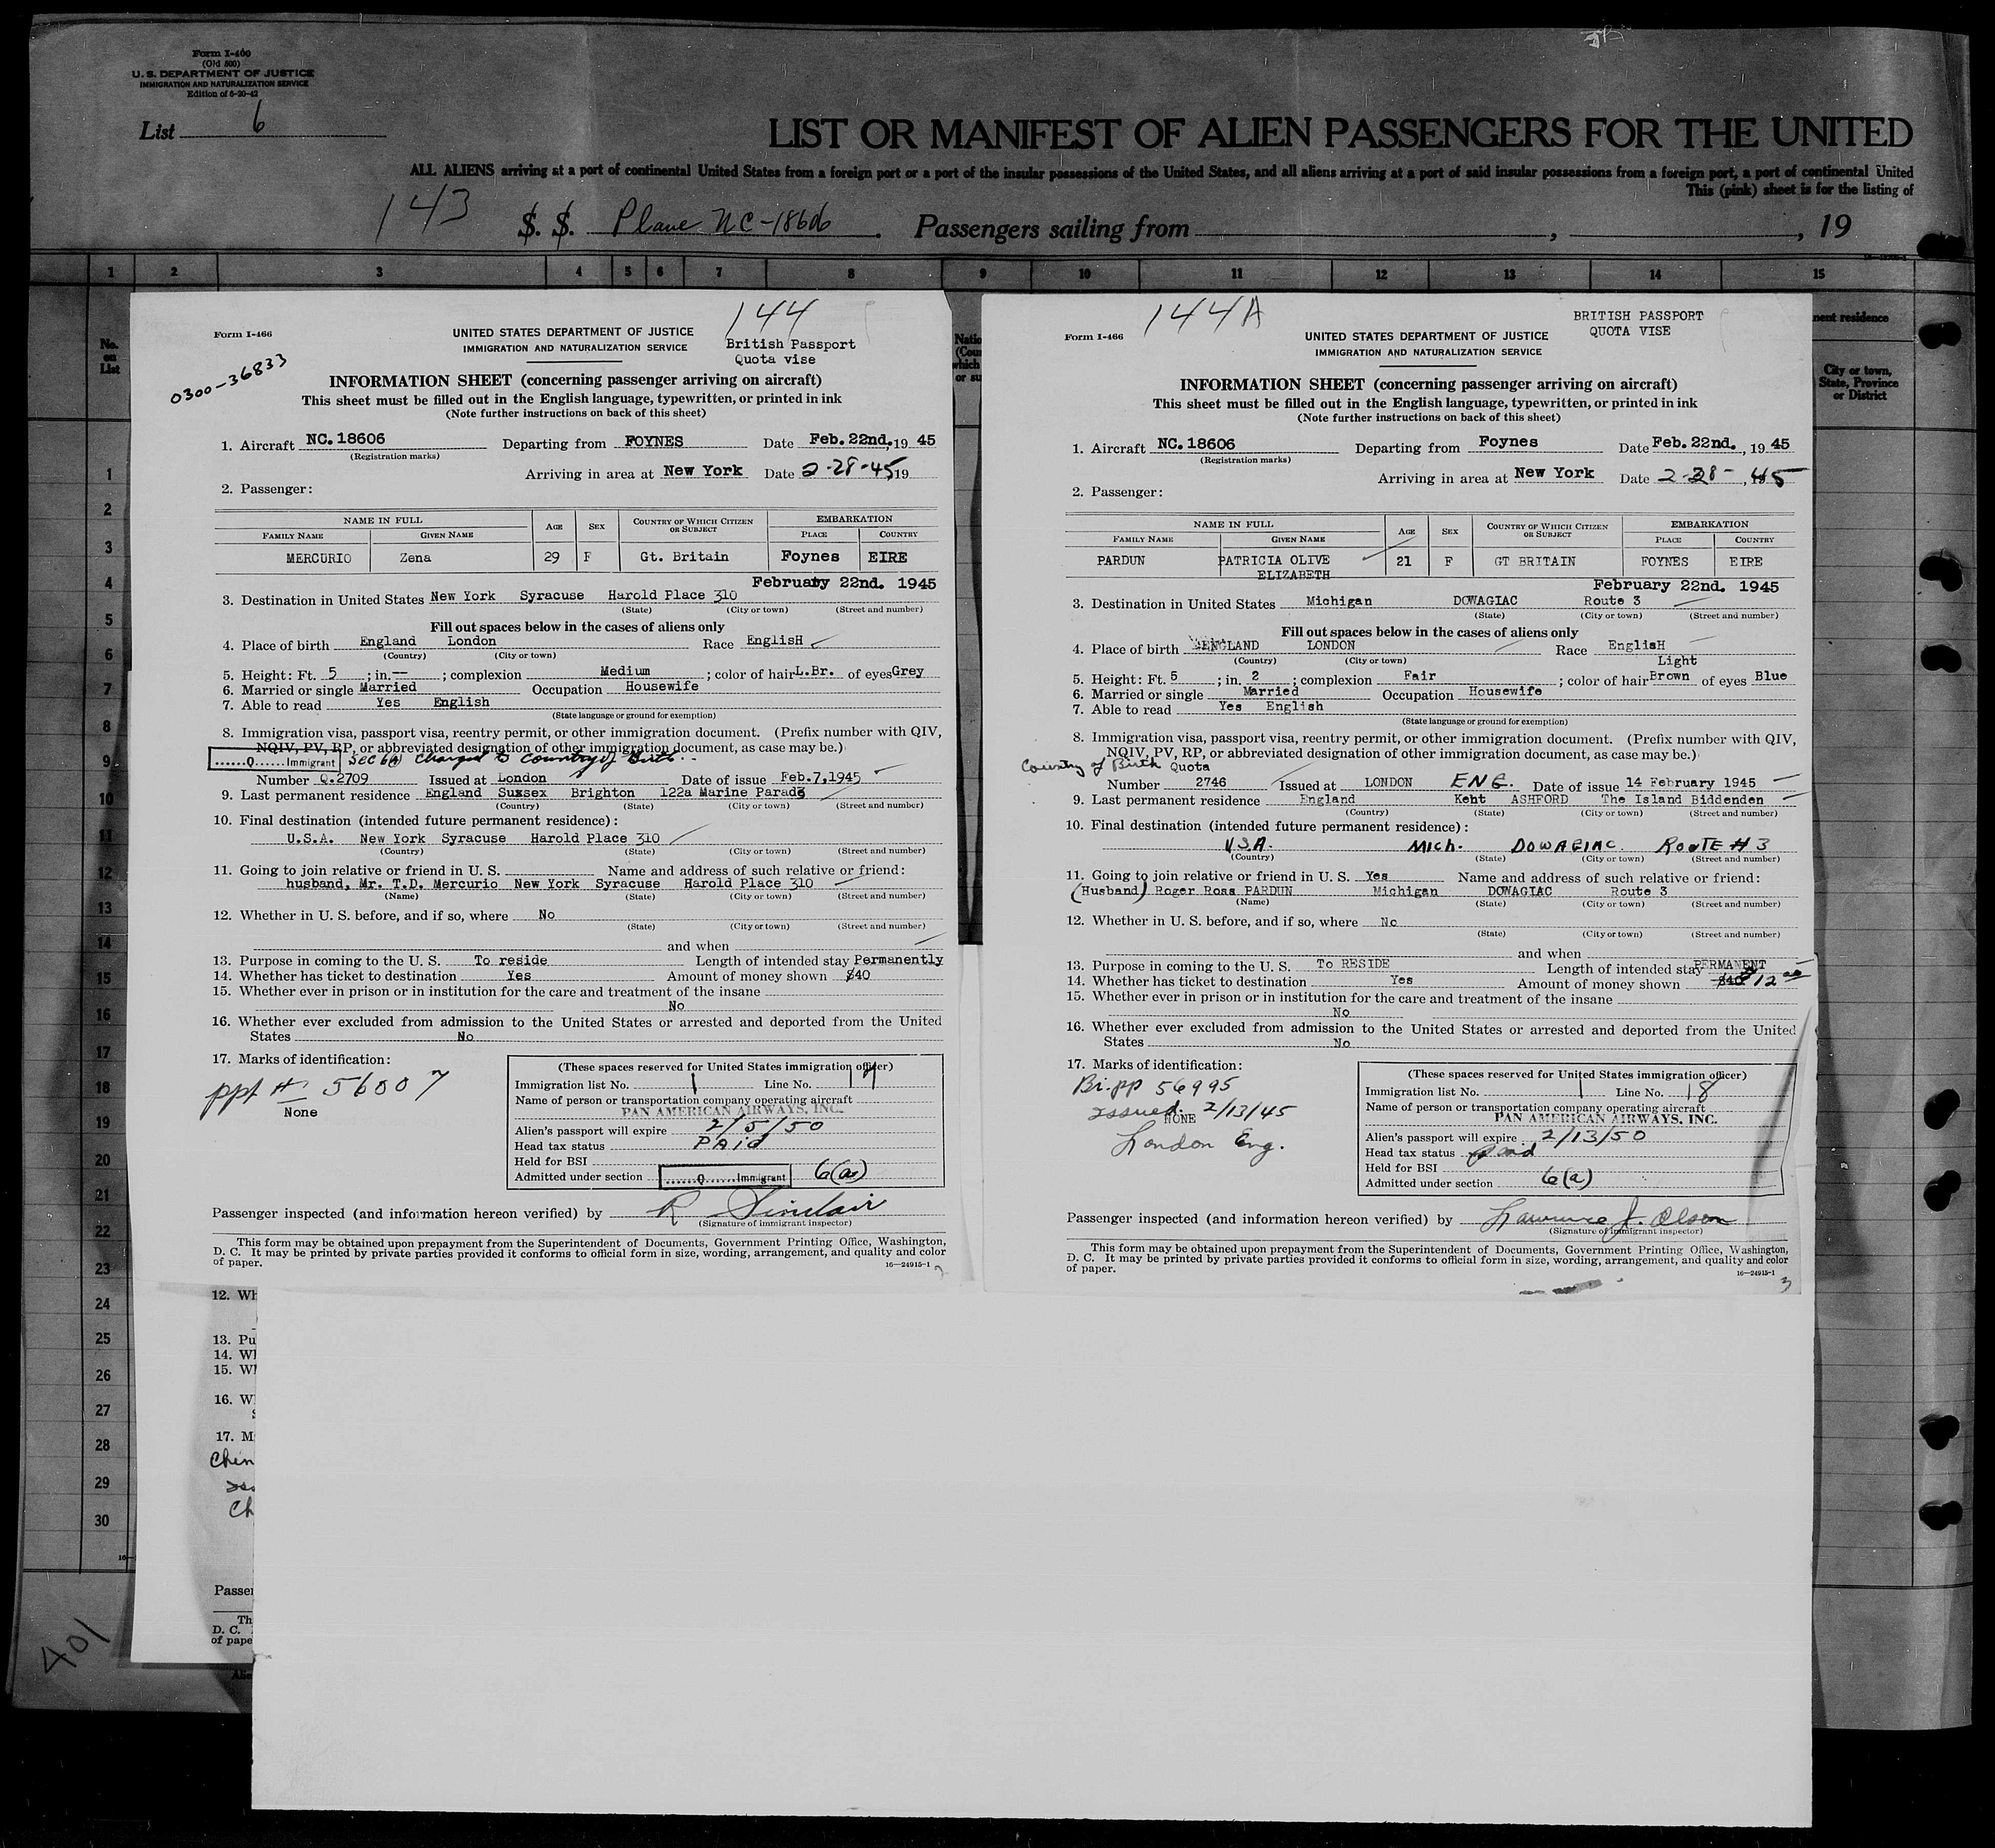 Form I-400
(Old 500)
U. S. DEPARTMENT OF JUSTICE
IMMIGRATION AND NATURALIZATION SERVICE
Edition of 6-20-42
List 6
LIST OR MANIFEST OF ALIEN PASSENGERS FOR THE UNITED
ALL ALIENS arriving at a port of continental United States from a foreign port or a port of the insular possessions of the United States, and all aliens arriving at a port of said insular possessions from a foreign port, a port of continental United
This (pink) sheet is for the listing of
143 S. S. Plane NC-18606. Passengers sailing from , , 19
1 2 3 4 5 6 7 8 9 10 11 12 13 14 15
No. on List
nent residence
City or town, State, Province or District
1
2
3
4
5
6
7
8
9
10
11
12
13
14
15
16
17
18
19
20
21
22
23
24
25
26
27
28
29
30
401
144
Form I-466
UNITED STATES DEPARTMENT OF JUSTICE
IMMIGRATION AND NATURALIZATION SERVICE
British Passport
Quota vise
0300-36833
INFORMATION SHEET (concerning passenger arriving on aircraft)
This sheet must be filled out in the English language, typewritten, or printed in ink
(Note further instructions on back of this sheet)
1. Aircraft NC.18606 Departing from FOYNES Date Feb. 22nd, 19 45
(Registration marks)
Arriving in area at New York Date 2-28-45 19
2. Passenger:
NAME IN FULL AGE SEX COUNTRY OF WHICH CITIZEN OR SUBJECT EMBARKATION
FAMILY NAME GIVEN NAME PLACE COUNTRY
MERCURIO Zena 29 F Gt. Britain Foynes EIRE
February 22nd. 1945
3. Destination in United States New York Syracuse Harold Place 310
(State) (City or town) (Street and number)
Fill out spaces below in the cases of aliens only
4. Place of birth England London Race EnglisH
(Country) (City or town)
5. Height: Ft. 5 ; in. -- ; complexion Medium ; color of hair L.Br. of eyes Grey
6. Married or single Married Occupation Housewife
7. Able to read Yes English
(State language or ground for exemption)
8. Immigration visa, passport visa, reentry permit, or other immigration document. (Prefix number with QIV,
NQIV, PV, RP, or abbreviated designation of other immigration document, as case may be.)
......Q......Immigrant Sec 6(a) charged to country of birth
Number Q.2709 Issued at London Date of issue Feb.7,1945
9. Last permanent residence England Sussex Brighton 122a Marine Parade
(Country) (State) (City or town) (Street and number)
10. Final destination (intended future permanent residence):
U.S.A. New York Syracuse Harold Place 310
(Country) (State) (City or town) (Street and number)
11. Going to join relative or friend in U. S. Name and address of such relative or friend:
husband, Mr. T.D. Mercurio New York Syracuse Harold Place 310
(Name) (State) (City or town) (Street and number)
12. Whether in U. S. before, and if so, where No
(State) (City or town) (Street and number)
and when
13. Purpose in coming to the U. S. To reside Length of intended stay Permanently
14. Whether has ticket to destination Yes Amount of money shown $40
15. Whether ever in prison or in institution for the care and treatment of the insane
No
16. Whether ever excluded from admission to the United States or arrested and deported from the United
States No
17. Marks of identification:
ppt # 56007
None
(These spaces reserved for United States immigration officer)
Immigration list No. 1 Line No. 17
Name of person or transportation company operating aircraft
PAN AMERICAN AIRWAYS, INC.
Alien's passport will expire 2/5/50
Head tax status PAid
Held for BSI
Admitted under section ......Q......Immigrant 6(a)
Passenger inspected (and information hereon verified) by R Sinclair
(Signature of immigrant inspector)
This form may be obtained upon prepayment from the Superintendent of Documents, Government Printing Office, Washington,
D. C. It may be printed by private parties provided it conforms to official form in size, wording, arrangement, and quality and color
of paper.
16—24915-1
144A
Form I-466
UNITED STATES DEPARTMENT OF JUSTICE
IMMIGRATION AND NATURALIZATION SERVICE
BRITISH PASSPORT
QUOTA VISE
INFORMATION SHEET (concerning passenger arriving on aircraft)
This sheet must be filled out in the English language, typewritten, or printed in ink
(Note further instructions on back of this sheet)
1. Aircraft NC.18606 Departing from Foynes Date Feb. 22nd. , 19 45
(Registration marks)
Arriving in area at New York Date 2-28- , 45
2. Passenger:
NAME IN FULL AGE SEX COUNTRY OF WHICH CITIZEN OR SUBJECT EMBARKATION
FAMILY NAME GIVEN NAME PLACE COUNTRY
PARDUN PATRICIA OLIVE ELIZABETH 21 F GT BRITAIN FOYNES EIRE
February 22nd. 1945
3. Destination in United States Michigan DOWAGIAC Route 3
(State) (City or town) (Street and number)
Fill out spaces below in the cases of aliens only
4. Place of birth ENGLAND LONDON Race EnglisH
(Country) (City or town)
5. Height: Ft. 5 ; in. 2 ; complexion Fair ; color of hair Light Brown of eyes Blue
6. Married or single Married Occupation Housewife
7. Able to read Yes English
(State language or ground for exemption)
8. Immigration visa, passport visa, reentry permit, or other immigration document. (Prefix number with QIV,
NQIV, PV, RP, or abbreviated designation of other immigration document, as case may be.)
Country of Birth Quota
Number 2746 Issued at LONDON ENG. Date of issue 14 February 1945
9. Last permanent residence England Kent ASHFORD The Island Biddenden
(Country) (State) (City or town) (Street and number)
10. Final destination (intended future permanent residence):
USA. Mich. DOWAGIAC. RouTE # 3
(Country) (State) (City or town) (Street and number)
11. Going to join relative or friend in U. S. Yes Name and address of such relative or friend:
(Husband) Roger Ross PARDUN Michigan DOWAGIAC Route 3
(Name) (State) (City or town) (Street and number)
12. Whether in U. S. before, and if so, where No
(State) (City or town) (Street and number)
and when
13. Purpose in coming to the U. S. To RESIDE Length of intended stay PERMANENT
14. Whether has ticket to destination Yes Amount of money shown $40 $12 00
15. Whether ever in prison or in institution for the care and treatment of the insane
No
16. Whether ever excluded from admission to the United States or arrested and deported from the United
States No
17. Marks of identification:
Br. pp 56995
issued 2/13/45
NONE
London Eng.
(These spaces reserved for United States immigration officer)
Immigration list No. 1 Line No. 18
Name of person or transportation company operating aircraft
PAN AMERICAN AIRWAYS, INC.
Alien's passport will expire 2/13/50
Head tax status paid
Held for BSI
Admitted under section 6(a)
Passenger inspected (and information hereon verified) by Lawrence J. Olson
(Signature of immigrant inspector)
This form may be obtained upon prepayment from the Superintendent of Documents, Government Printing Office, Washington,
D. C. It may be printed by private parties provided it conforms to official form in size, wording, arrangement, and quality and color
of paper.
16—24915-1
3
12. Wh
13. Pu
14. Wh
15. Wh
16. W
17. M
Chin
Ch
Passe
Th
D. C.
of pape
Alie